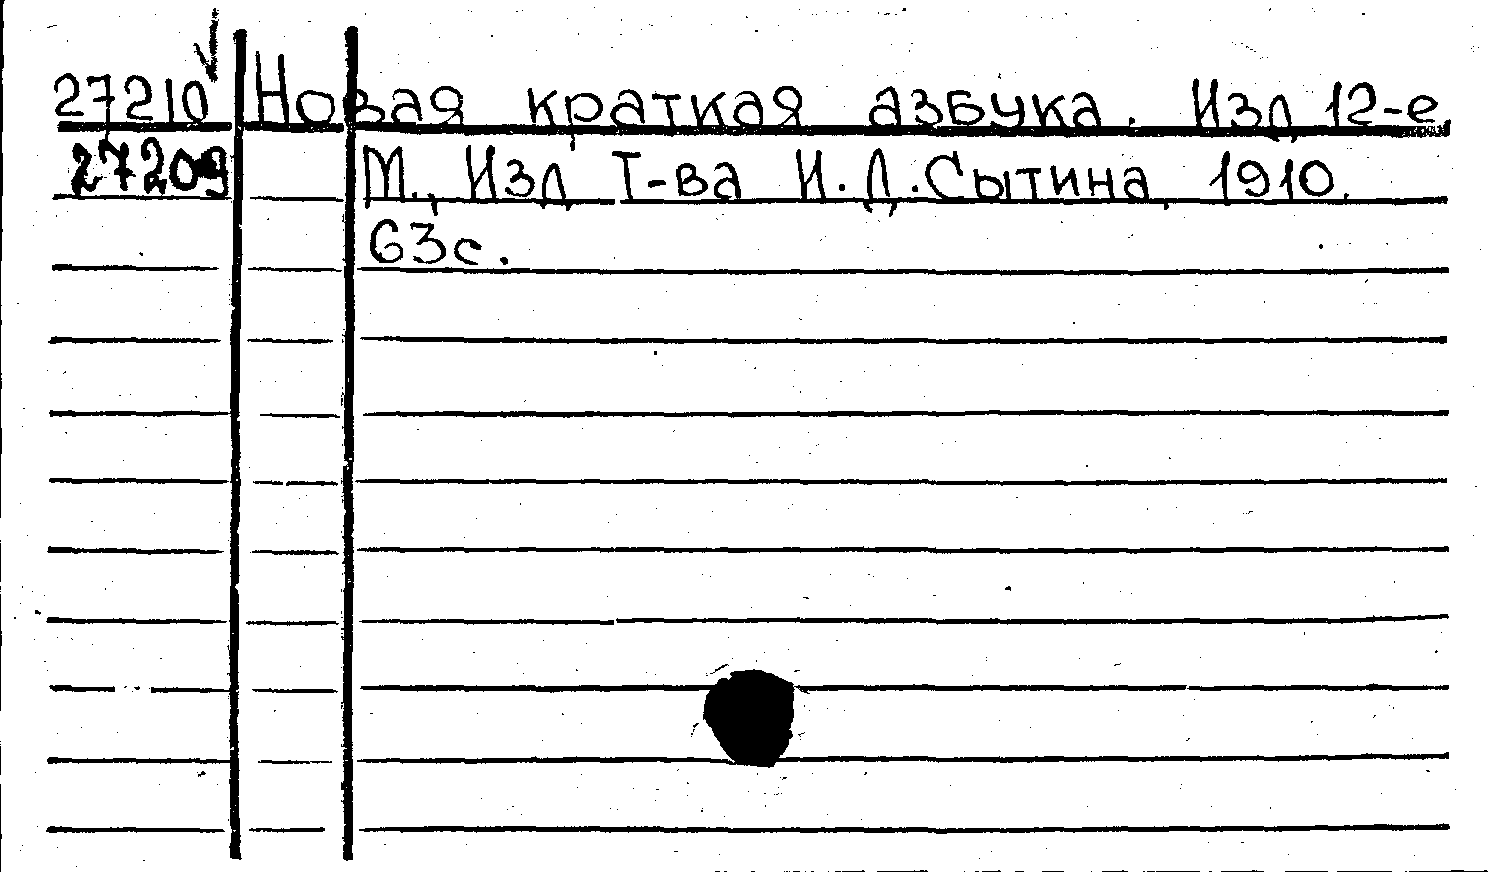 27210 Новая краткая азбука. Изд. 12-е,
27209 М., Изд. Т-ва И.Д.Сытина, 1910.
63с.